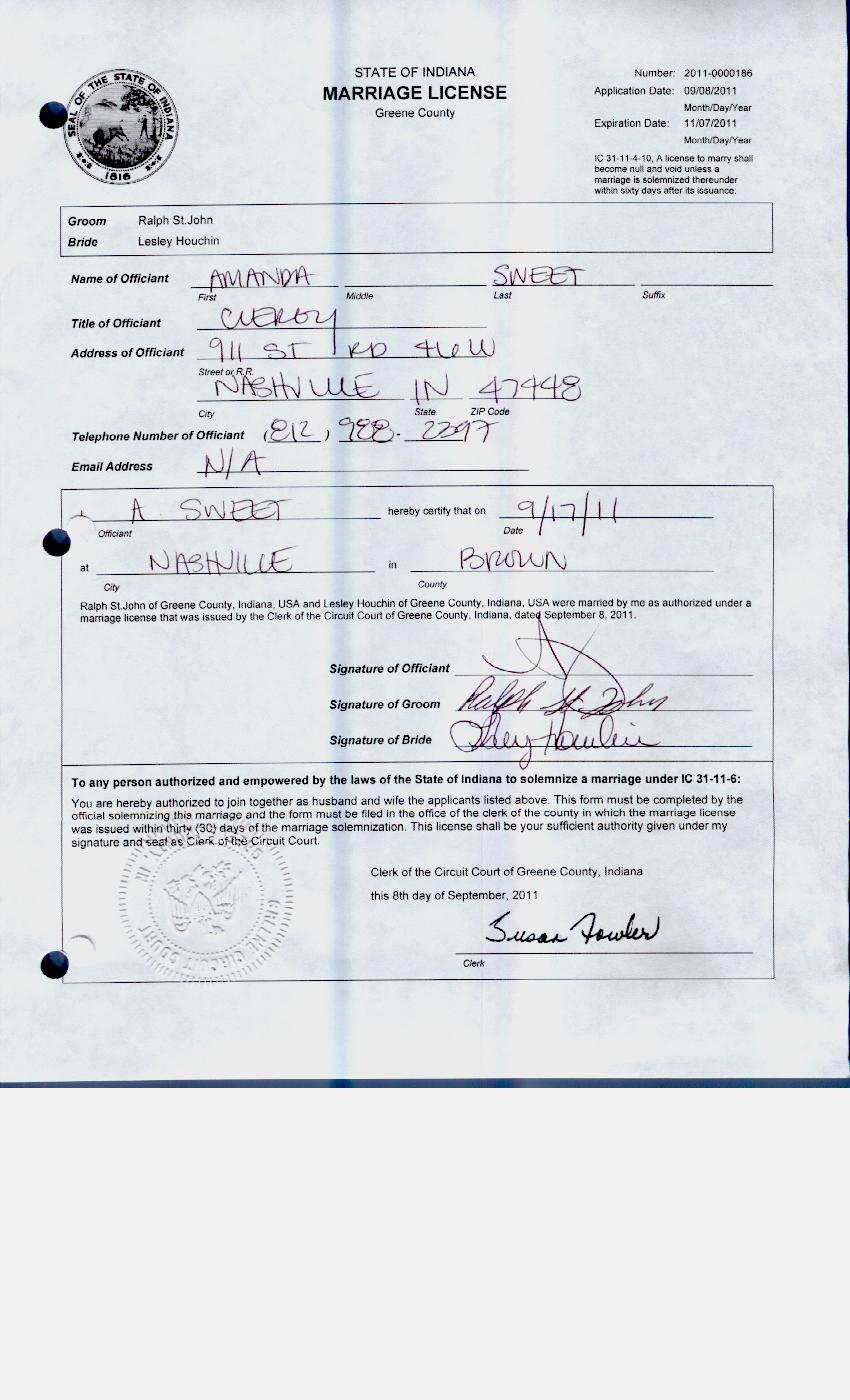 SEAL OF THE STATE OF INDIANA
1816
STATE OF INDIANA
MARRIAGE LICENSE
Greene County
Number: 2011-0000186
Application Date: 09/08/2011
Month/Day/Year
Expiration Date: 11/07/2011
Month/Day/Year
IC 31-11-4-10, A license to marry shall
become null and void unless a
marriage is solemnized thereunder
within sixty days after its issuance.
Groom Ralph St.John
Bride Lesley Houchin
Name of Officiant AMANDA SWEET
First Middle Last Suffix
Title of Officiant CLERGY
Address of Officiant 911 ST RD 46 W
Street or R.R.
NASHVILLE IN 47448
City State ZIP Code
Telephone Number of Officiant (812) 988-2397
Email Address N/A
A. SWEET hereby certify that on 9/17/11
Officiant Date
at NASHVILLE in BROWN
City County
Ralph St.John of Greene County, Indiana, USA and Lesley Houchin of Greene County, Indiana, USA were married by me as authorized under a
marriage license that was issued by the Clerk of the Circuit Court of Greene County, Indiana, dated September 8, 2011.
Signature of Officiant
Signature of Groom Ralph St. John
Signature of Bride
To any person authorized and empowered by the laws of the State of Indiana to solemnize a marriage under IC 31-11-6:
You are hereby authorized to join together as husband and wife the applicants listed above. This form must be completed by the
official solemnizing this marriage and the form must be filed in the office of the clerk of the county in which the marriage license
was issued within thirty (30) days of the marriage solemnization. This license shall be your sufficient authority given under my
signature and seal as Clerk of the Circuit Court.
Clerk of the Circuit Court of Greene County, Indiana
this 8th day of September, 2011
Susan Fowler
Clerk
GREENE CIRCUIT COURT